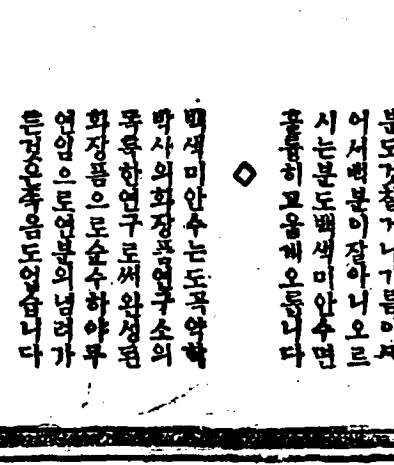 분도것칠거나기름이
어서백분이잘아니오르
시는분도백색미안수면
훌륭히고읍게오릅니다
◇
백색미안수는도꼭약학
박사의화장품연구소의
독특한연구로써완성된
화장품으로순수하야무
연임으로연분의념려가
든것은족음도업습니다